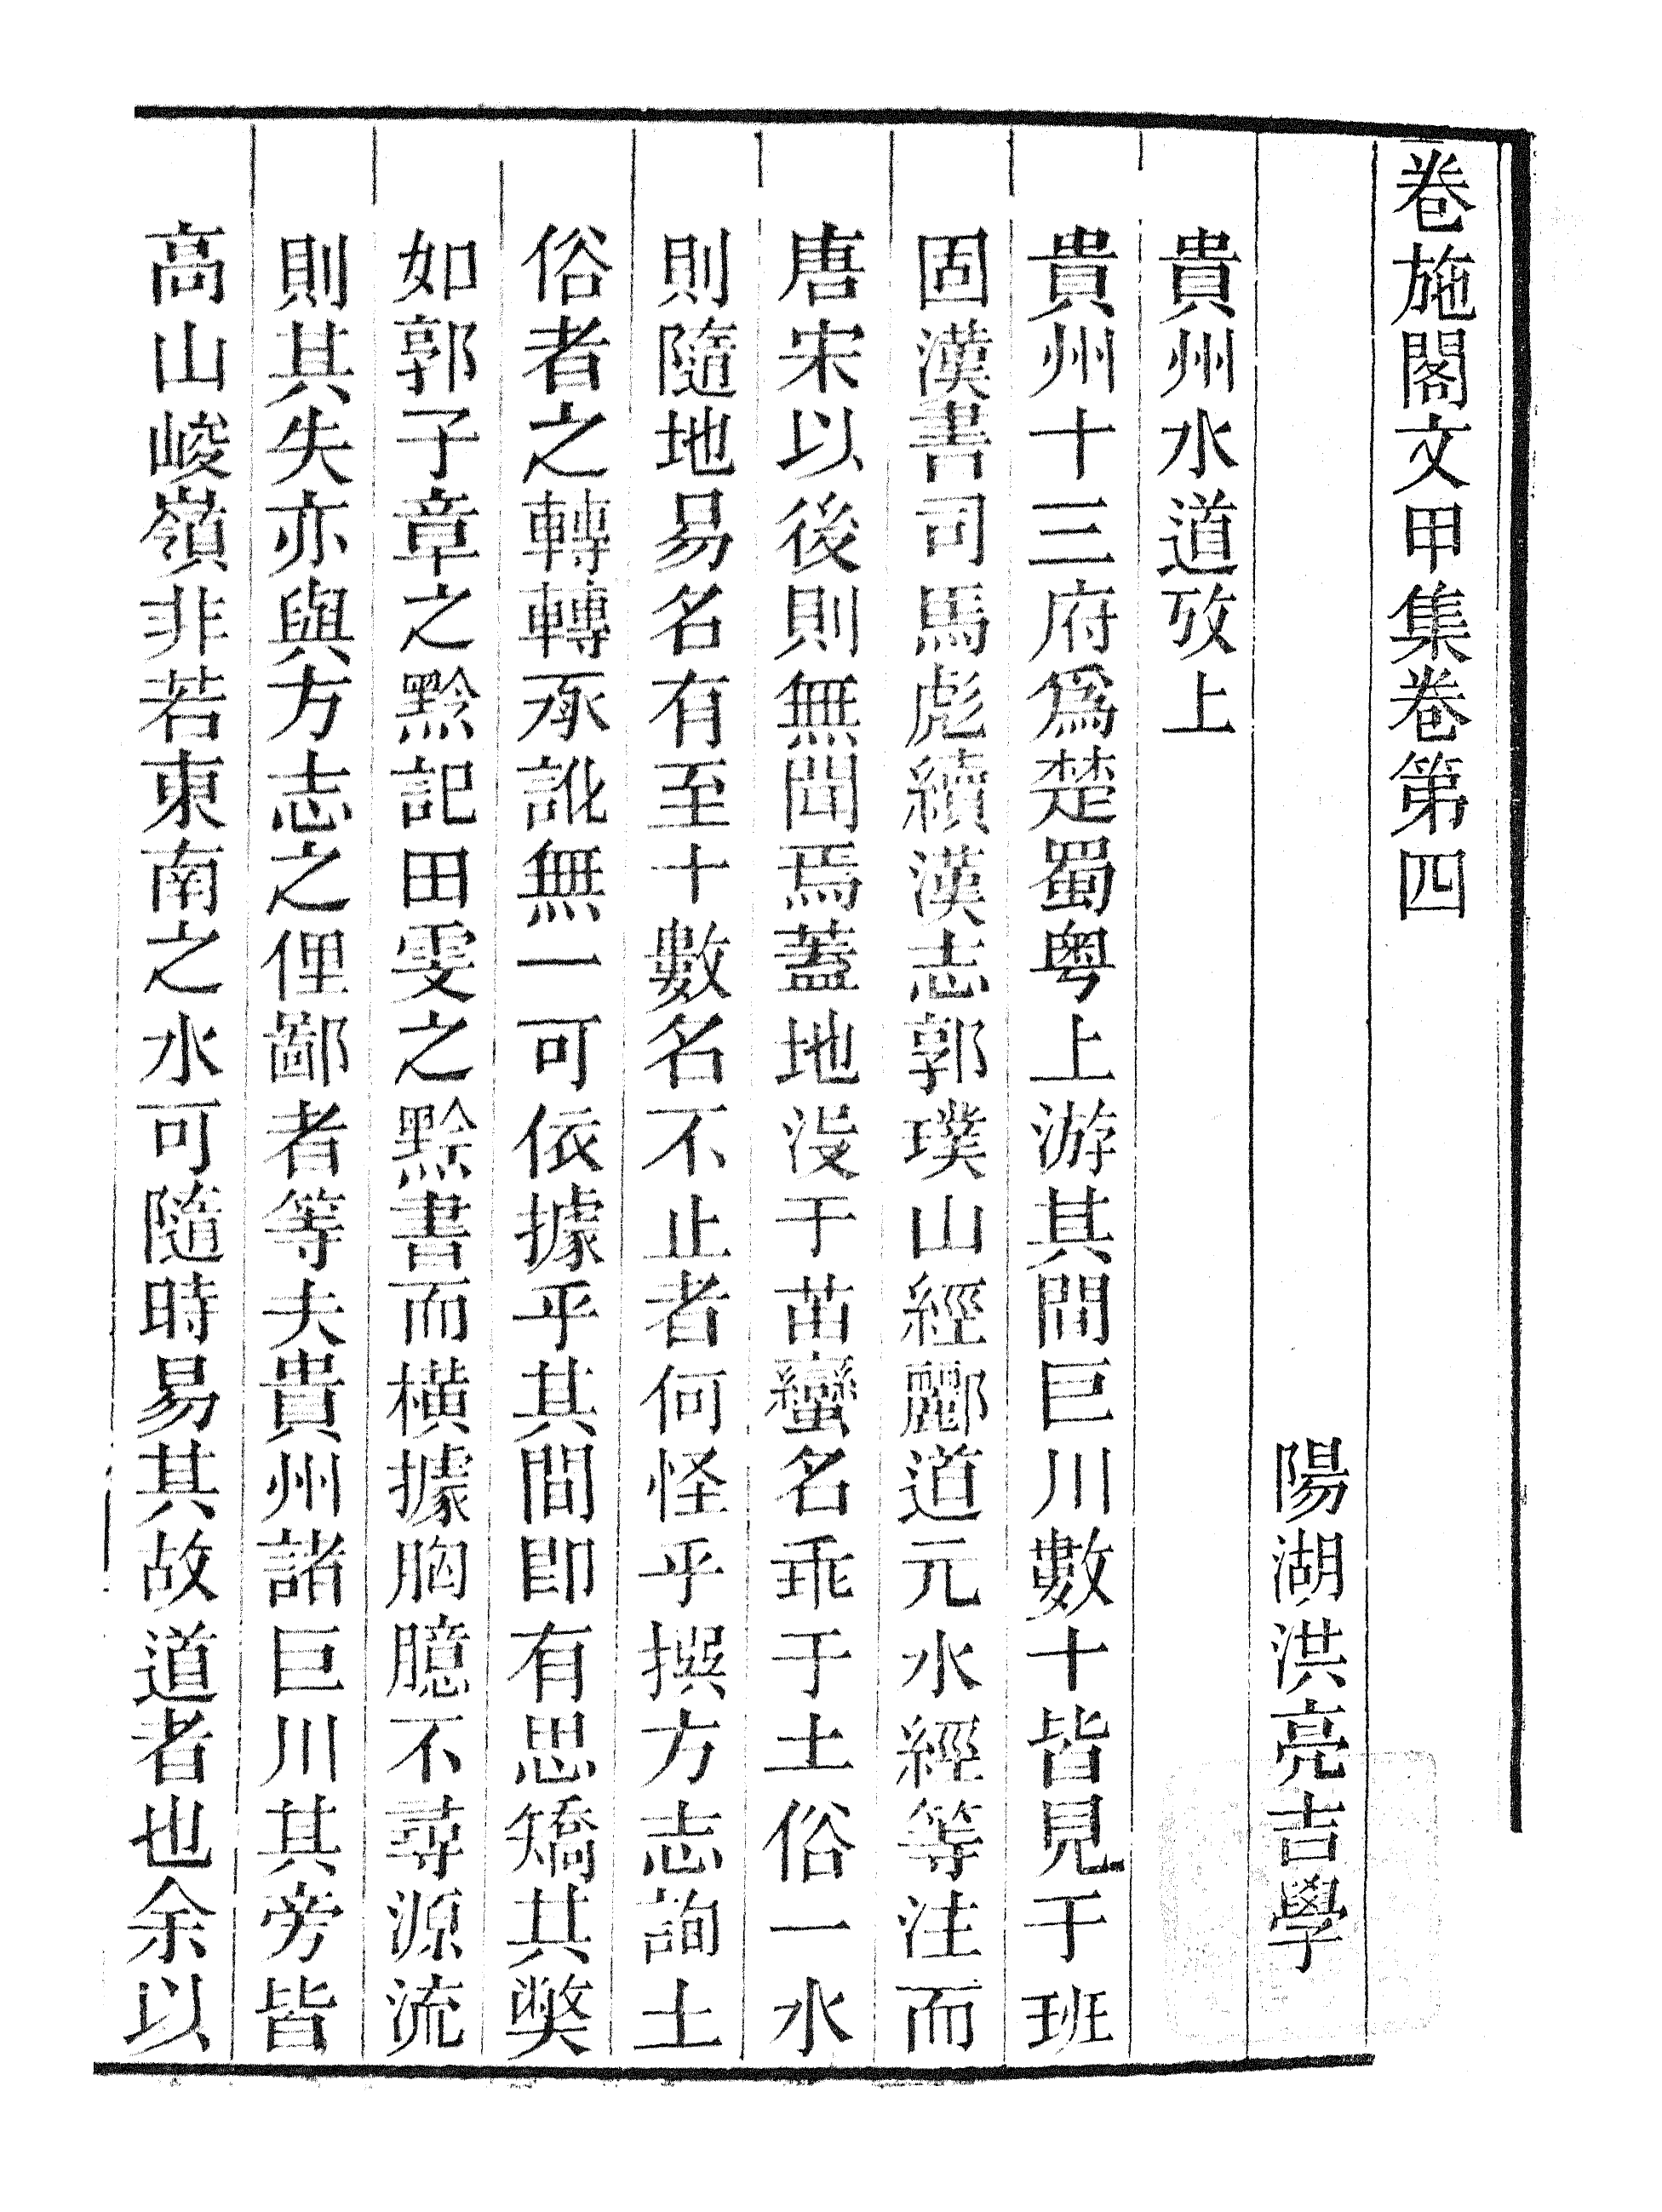 卷施閣文甲集卷第四
陽湖洪亮吉學
貴州水道攷上
貴州十三府爲楚蜀粤上游其間巨川數十皆見于班
固漢書司馬彪續漢志郭璞山經酈道元水經等注而
唐宋以後則無聞焉葢地沒于苗蠻名乖于土俗一水
則隨地易名有至十數名不止者何怪乎撰方志詢土
俗者之轉轉承訛無一可依據乎其間卽有思矯其獘
如郭子章之黔記田雯之黔書而橫據胸臆不尋源流
則其失亦與方志之俚鄙者等夫貴州諸巨川其旁皆
高山峻嶺非若東南之水可隨時易其故道者也余以